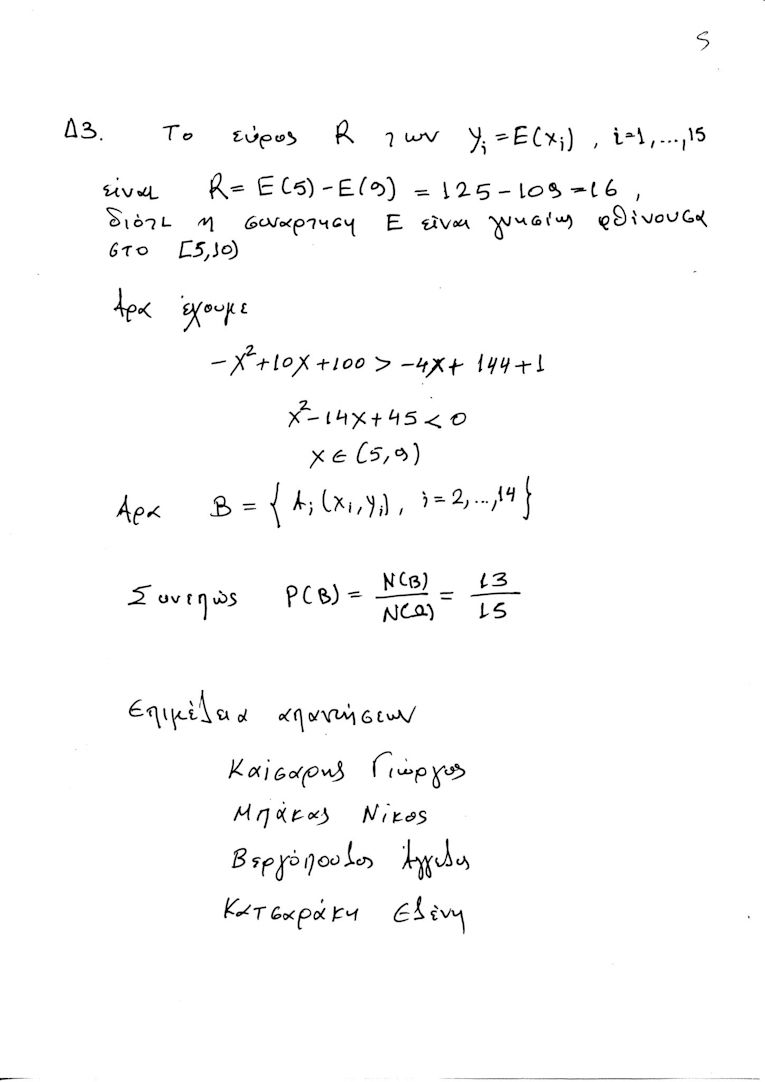 5
Δ3. Το εύρος R των y_i = E(x_i), i=1,...,15
είναι R = E(5) - E(9) = 125 - 109 = 16,
διότι η συνάρτηση E είναι γνησίως φθίνουσα
στο [5,10)
Άρα έχουμε
-x²+10x+100 > -4x+ 144+1
x²-14x+45 < 0
x ∈ (5,9)
Άρα B = { A_i (x_i, y_i), i=2,...,14 }
Συνεπώς P(B) = N(B)/N(Ω) = 13/15
Επιμέλεια απαντήσεων
Καίσαρης Γιώργος
Μπάκας Νίκος
Βεργόπουλος Άγγελος
Κατσαράκη Ελένη